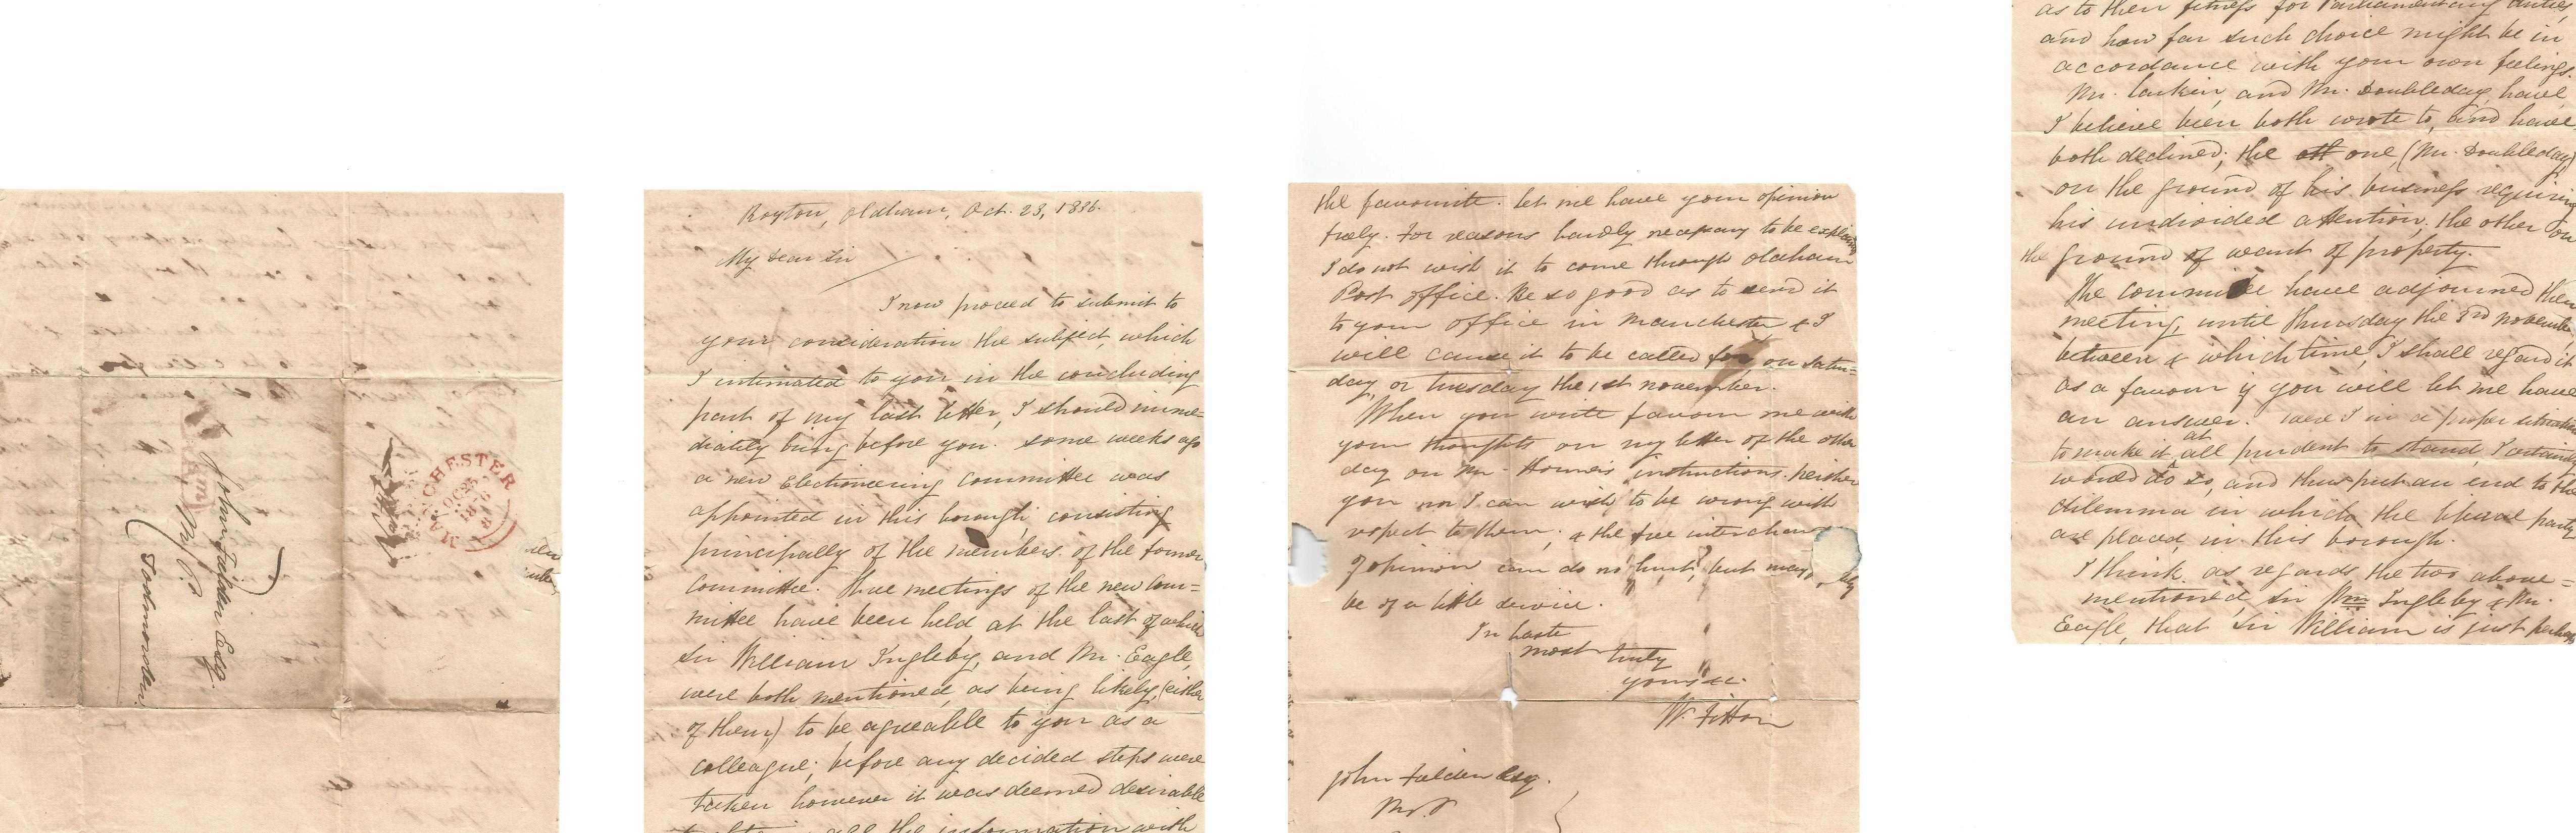 John Fielden Esq.
M.P.
Todmorden
MANCHESTER
OC 23
1836
8
Royton, Oldham, Oct. 23, 1836.
My Dear Sir
I now proceed to submit to
your consideration the subject, which
I intimated to you in the concluding
part of my last letter, I should imme=
diately bring before you. Some weeks ago
a new Electioneering Committee was
appointed in this borough, consisting
principally of the members of the former
Committee. Three meetings of the new Com=
mittee have been held at the last of which
Sir William Ingleby, and Mr. Eagle,
were both mentioned, as being likely, (either
of them) to be agreeable to you as a
colleague; before any decided steps were
taken however it was deemed desirable
all the information with
the favourite. Let me have your opinion
freely. For reasons hardly necessary to be explained
I do not wish it to come through Oldham
Post office. Be so good as to send it
to your office in Manchester & I
will cause it to be called for on Satur=
day or Tuesday the 1st November.
When you write favour me with
your thoughts on my letter of the other
day on Mr. Horner's instructions. Neither
you nor I can wish to be wrong with
respect to them; & the free interchange
of opinion can do no hurt, but may
be of a little service.
In haste
most truly
yours &c.
W. Fitton
John Fielden Esq.
M.P
as to their fitness for Parliamentary duties,
and how far such choice might be in
accordance with your own feelings.
Mr. Larkin, and Mr. Doubleday, have,
I believe been both wrote to, and have
both declined; the oth one, (Mr. Doubleday)
on the ground of his business requiring
his undivided attention, the other on
the ground of want of property.
The Committee have adjourned their
meeting, until Thursday the 3rd November
between & which time, I shall regard it
as a favour if you will let me have
an answer. Were I in a proper situation
to make it at all prudent to stand, I certainly
would do so, and thus put an end to the
dilemma in which the liberal party
are placed, in this borough.
I think, as regards the two above=
mentioned, Sir Wm Ingleby & Mr.
Eagle, that Sir William is just perhaps